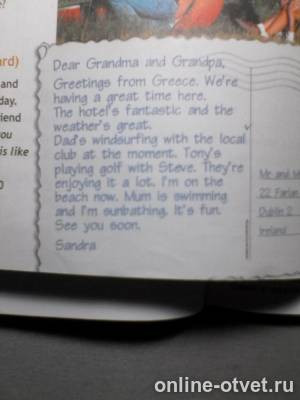 ard)
and
day.
friend
you
is like
Dear Grandma and Grandpa,
Greetings from Greece. We're
having a great time here.
The hotel's fantastic and the
weather's great.
Dad's windsurfing with the local
club at the moment. Tony's
playing golf with Steve. They're
enjoying it a lot. I'm on the
beach now. Mum is swimming
and I'm sunbathing. It's fun.
See you soon.
Sandra
Mr and M
22
Dublin 2
Ireland
online-otvet.ru